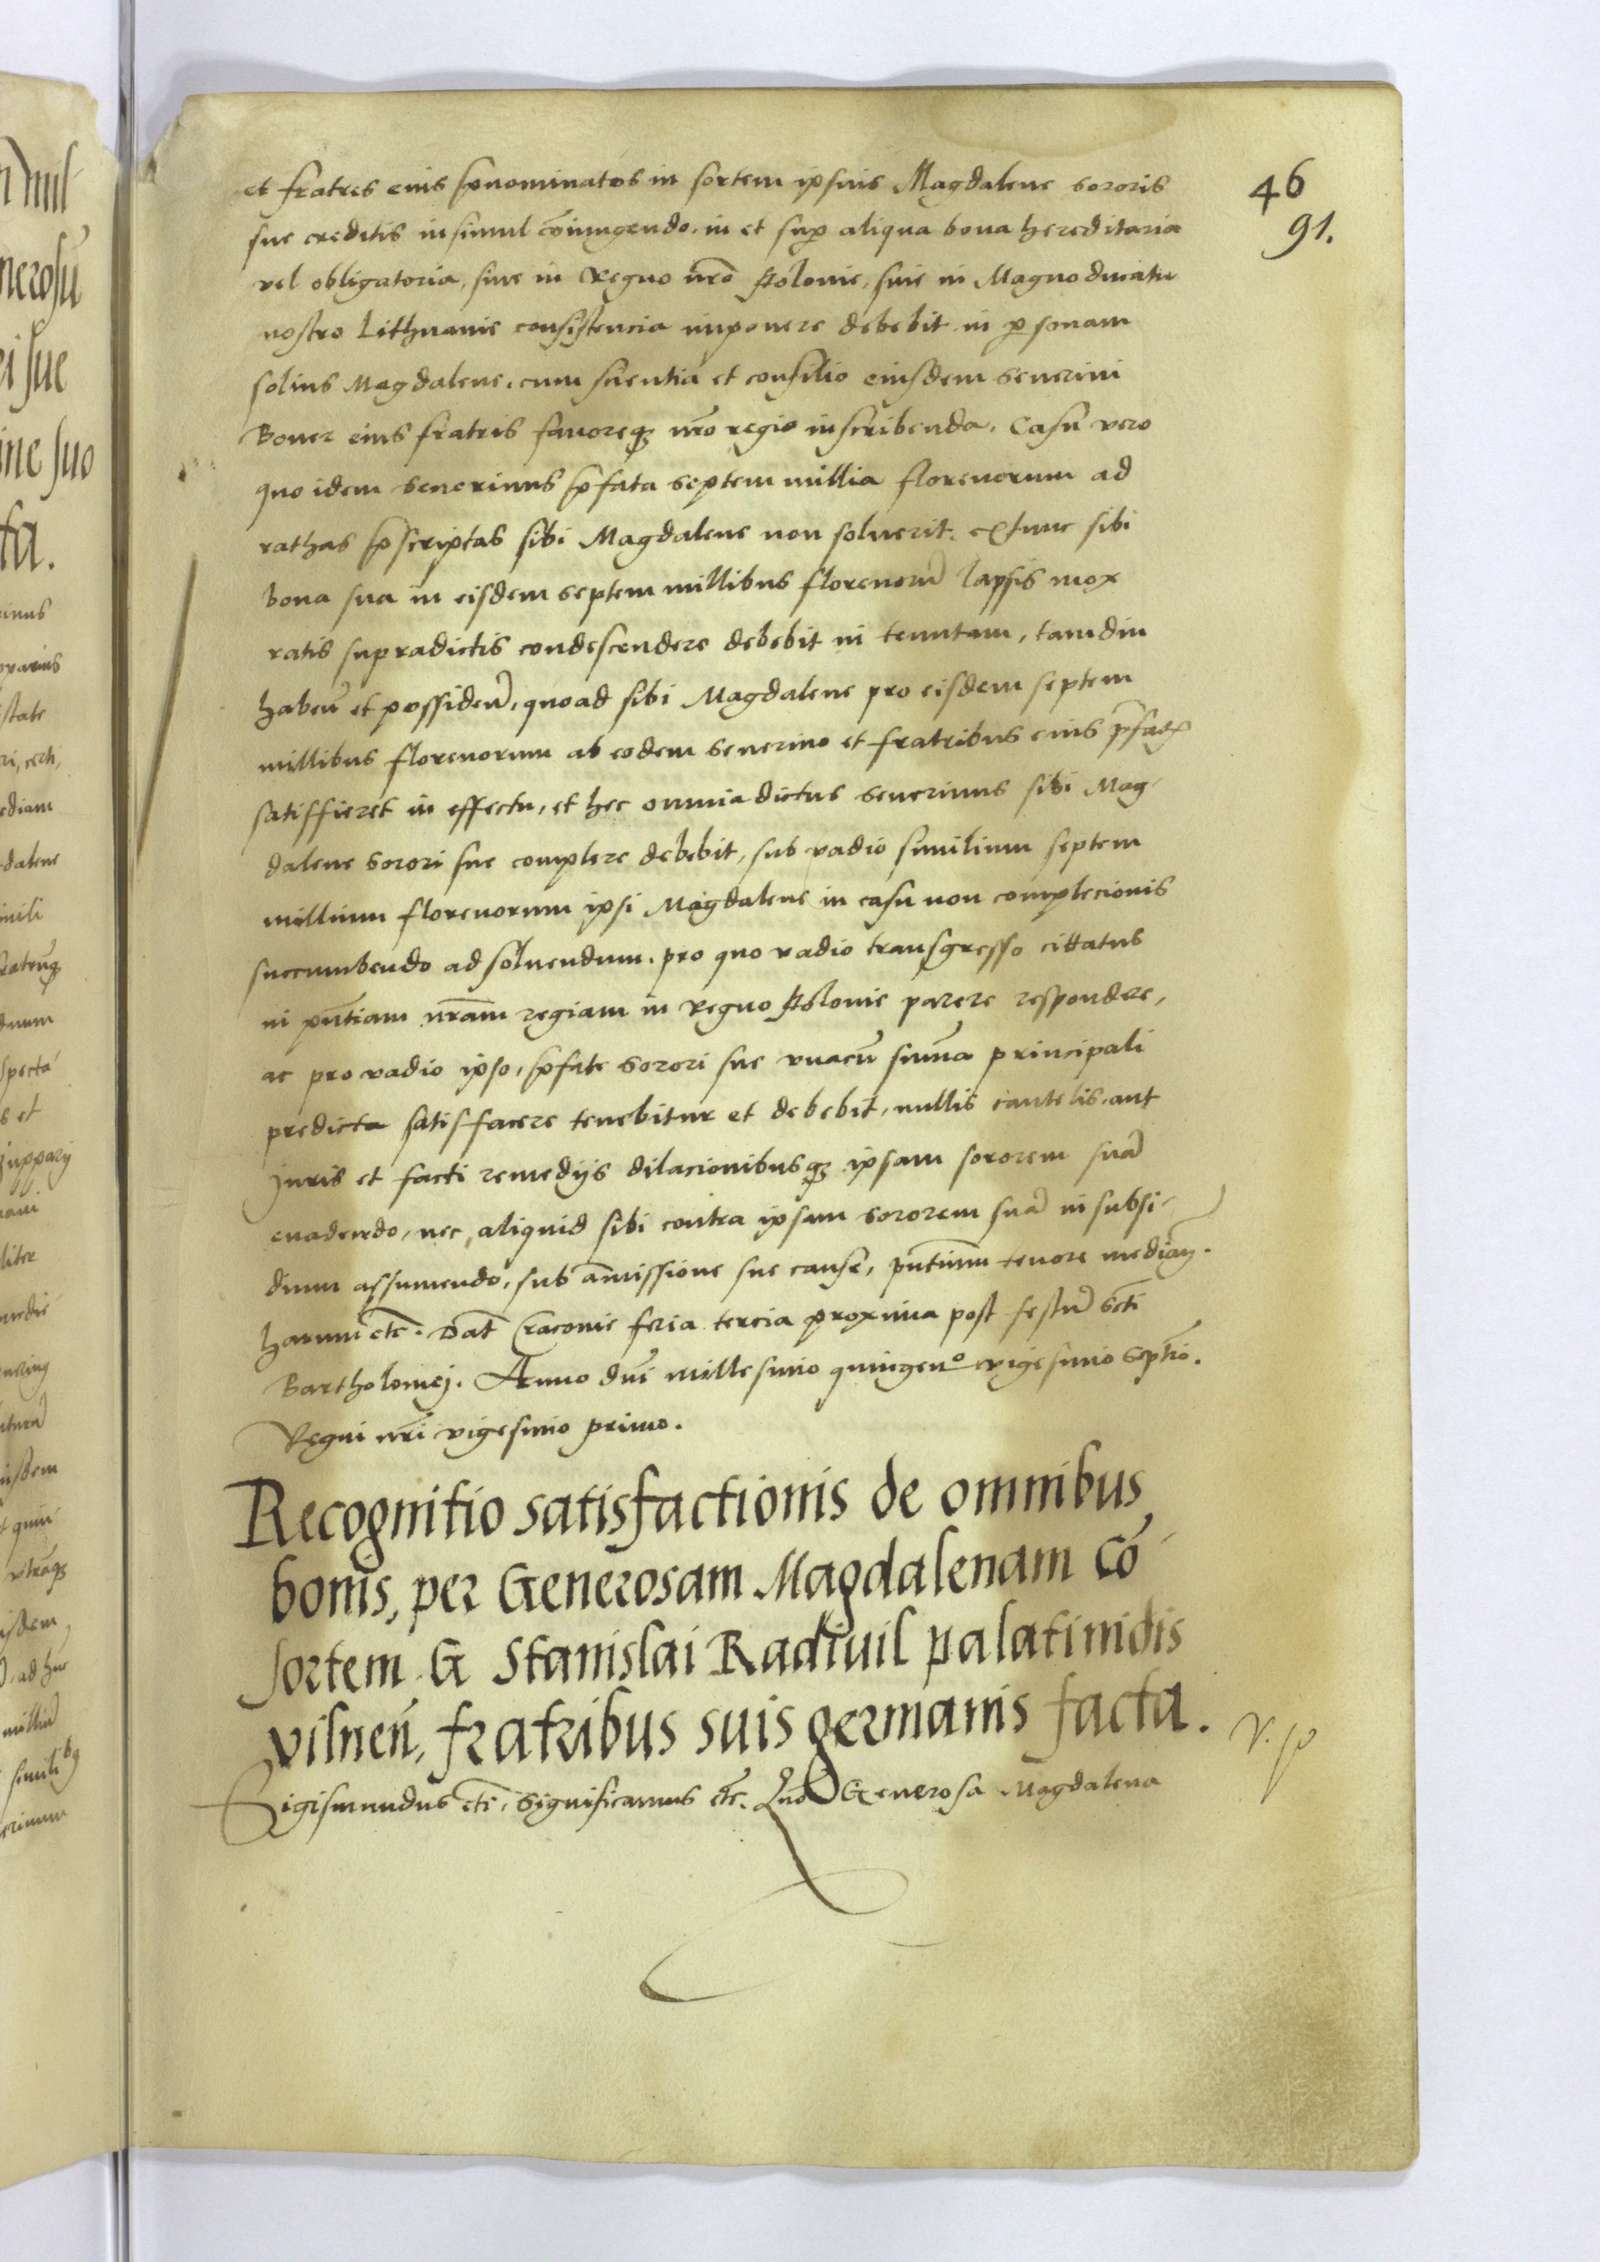 46
91.
et fratres eius p̄nominatos in sortem ipsius Magdalene sororis
sue creditis insimul cōiungendo, in et sup aliqua bona hereditaria
vel obligatoria, siue in Regno nr̄o Polonie, siue in Magno ducatu
nostro Lithuanie consistencia imponere debebit in personam
solius Magdalene, cum scientia et consilio eiusdem Seuerini
Boner eius fratris fauoreq; nr̄o regio inscribenda. Casu vero
quo idem Seuerinus p̄fata septem millia florenorum ad
rathas p̄scriptas sibi Magdalene non soluerit. extunc sibi
bona sua in eisdem septem millibus florenorū lapsis mox
ratis supradictis condescendere debebit in tenutam, tamdiu
habeñ et possideñ, quoad sibi Magdalene pro eisdem septem
millibus florenorum ab eodem Seuerino et fratribus eius p̄fatꝭ
satisfieret in effectu, et hec omnia dictus Seuerinus sibi Mag-
dalene sorori sue complere debebit, sub vadio similium septem
millium florenorum ipsi Magdalene in casu non complecionis
succumbendo ad soluendum. pro quo vadio transgresso cittatus
in pn̄tiam nr̄am regiam in Regno Polonie parere respondere,
ac pro vadio ipso, p̄fate sorori sue vnacū sum̄a principali
predicta satisfacere tenebitur et debebit, nullis cautelis, aut
Juris et facti remedijs dilacionibusq; ipsam sororem suā
euadendo, nec aliquid sibi contra ipsam sororem suā in subsi-
dium assumendo, sub am̄issione sue cause, pn̄tium tenore median̄.
harum etc̄. Dat̄ Cracouie feria tercia proxima post festū Sc̄ti
Bartholomej. Anno dn̄i millesimo quingen̄o vigesimo Septīo.
Regni nr̄i vigesimo primo.
Recognitio satisfactionis de omnibus
bonis, per Generosam Magdalenam Cō
sortem G Stanislai Radiuil palatinidis
vilneñ, fratribus suis germanis facta.
Sigismundus etc̄, Significamus etc̄. Quod Generosa Magdalena